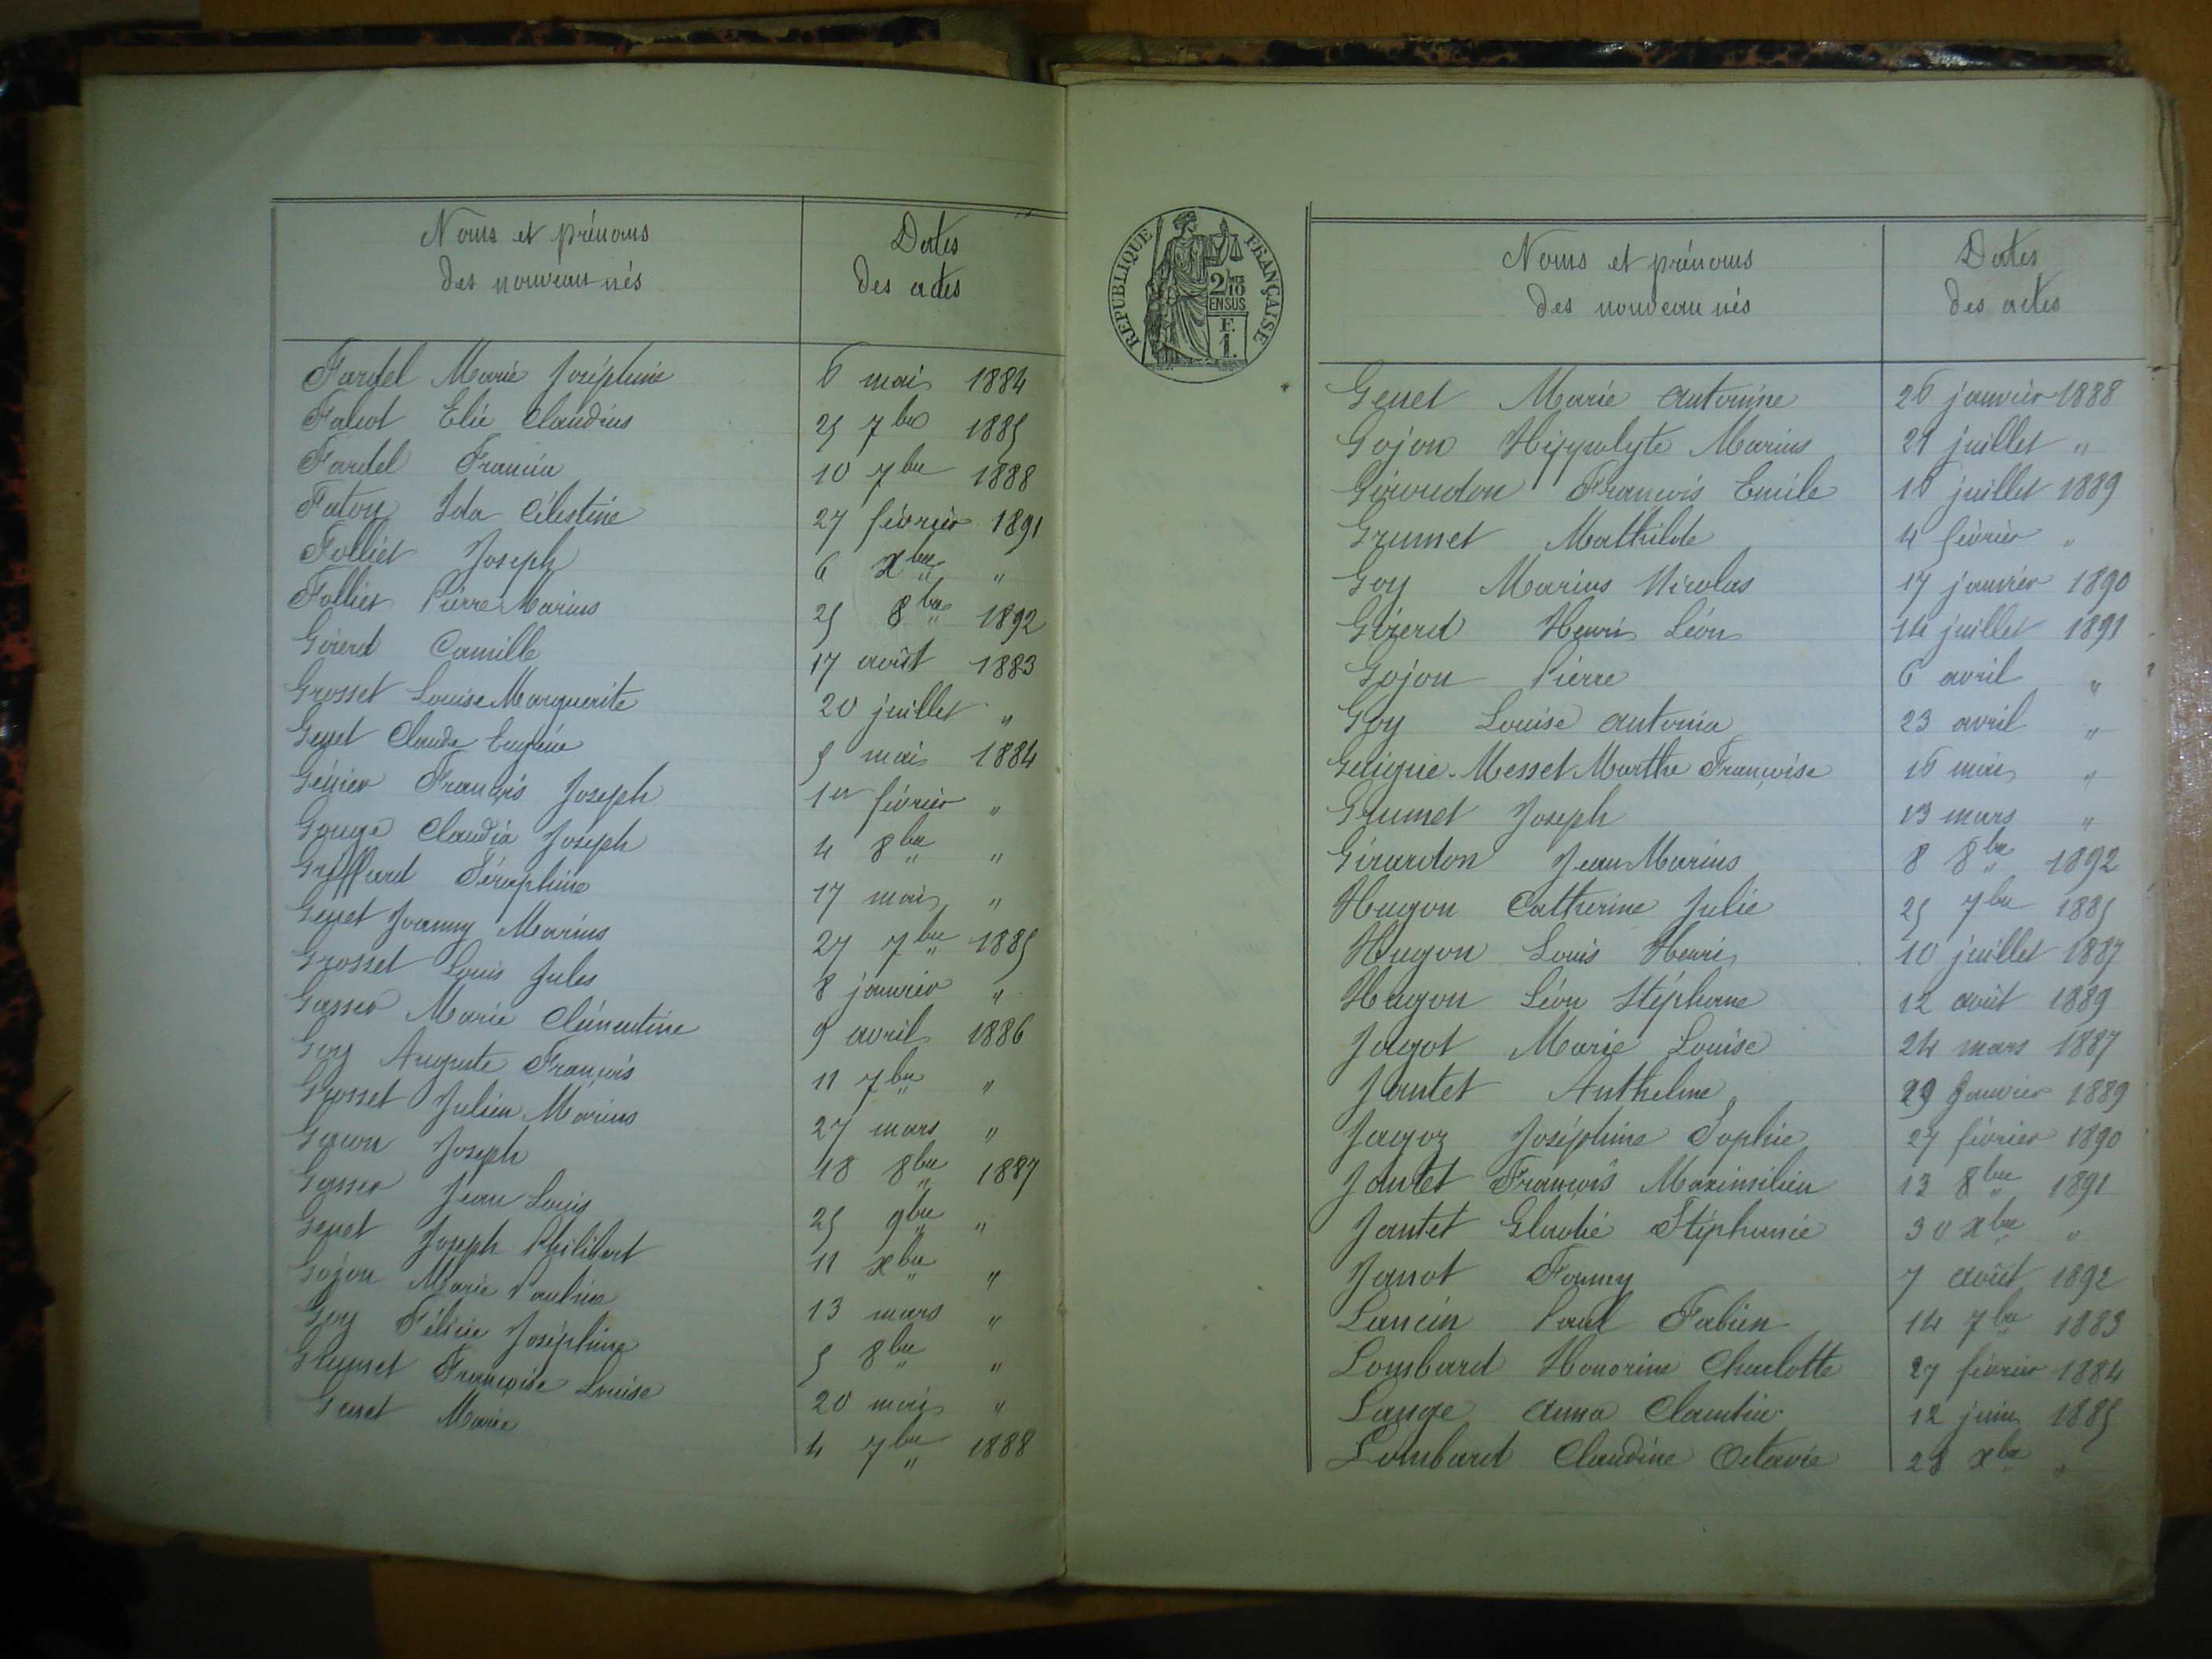 Noms et prénoms
des nouveau nés
Dates
des actes
Fardel Marie Joséphine 6 mai 1884
Falcot Elie Claudius 25 7bre 1885
Fardel Francia 10 7bre 1888
Faton Ida Célestine 27 février 1891
Folliet Joseph 6 Xbre "
Folliet Pierre Marius 25 8bre 1892
Girerd Camille 17 août 1883
Grosset Louise Marguerite 20 juillet "
Genet Claude Eugène 5 mai 1884
Génier François Joseph 1er février "
Gouge Claudia Joseph 4 8bre "
Griffard Séraphine 17 mai "
Genet Joanny Marius 27 7bre 1885
Grosset Louis Jules 8 janvier "
Gasser Marie Clémentine 9 avril 1886
Goy Auguste François 11 7bre "
Grosset Julien Marius 27 mars "
Gacon Joseph 18 8bre 1887
Gasser Jean Louis 25 9bre "
Genet Joseph Philibert 11 Xbre "
Gojon Marie Pauline 13 mars "
Goy Félicie Joséphine 5 8bre "
Grumet Françoise Louise 20 mai "
Genet Marie 4 7bre 1888
RÉPUBLIQUE FRANÇAISE
2/10
EN SUS
F.
1.
Noms et prénoms
des nouveau nés
Dates
des actes
Genet Marie Antonine 26 janvier 1888
Gojon Hippolyte Marius 21 juillet "
Giroudon François Emile 16 juillet 1889
Grumet Mathilde 4 février "
Goy Marius Nicolas 17 janvier 1890
Girerd Henri Léon 14 juillet 1891
Gojon Pierre 6 avril "
Goy Louise Antonia 23 avril "
Guigue-Messet Marthe Françoise 16 mai "
Grumet Joseph 13 mars "
Girardon Jean Marius 8 8bre 1892
Hugon Catherine Julie 25 7bre 1885
Hugon Louis Henri 10 juillet 1887
Hugon Léon Stéphane 12 août 1889
Jagot Marie Louise 24 mars 1887
Jantet Anthelme 29 Janvier 1889
Jagoz Joséphine Sophie 27 février 1890
Jantet François Maximilien 13 8bre 1891
Jantet Elodie Stéphanie 30 Xbre "
Janot Fanny 7 août 1892
Lancin Paul Fabien 14 7bre 1883
Lombard Honorine Charlotte 27 février 1884
Lange Anna Claudine 12 juin 1885
Lombard Claudine Octavie 28 Xbre "